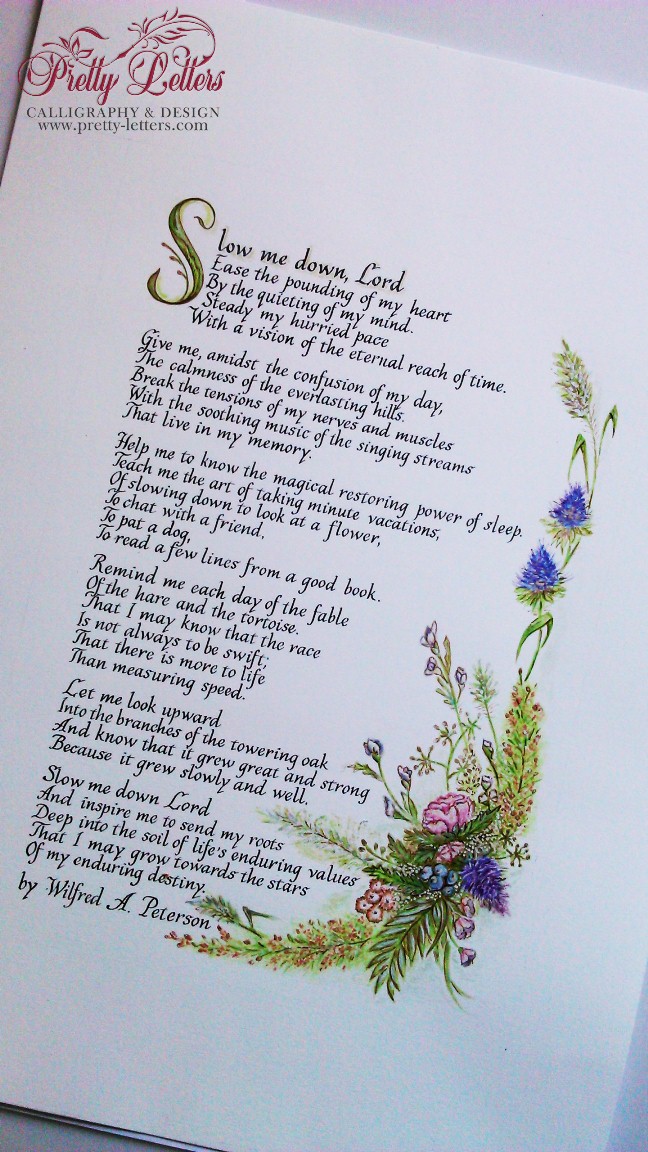 Pretty Letters
CALLIGRAPHY & DESIGN
www.pretty-letters.com
Slow me down, Lord
Ease the pounding of my heart
By the quieting of my mind.
Steady my hurried pace
With a vision of the eternal reach of time.
Give me, amidst the confusion of my day,
The calmness of the everlasting hills.
Break the tensions of my nerves and muscles
With the soothing music of the singing streams
That live in my memory.
Help me to know the magical restoring power of sleep.
Teach me the art of taking minute vacations,
Of slowing down to look at a flower,
To chat with a friend,
To pat a dog,
To read a few lines from a good book.
Remind me each day of the fable
Of the hare and the tortoise.
That I may know that the race
Is not always to be swift;
That there is more to life
Than measuring speed.
Let me look upward
Into the branches of the towering oak
And know that it grew great and strong
Because it grew slowly and well.
Slow me down Lord
And inspire me to send my roots
Deep into the soil of life's enduring values
That I may grow towards the stars
Of my enduring destiny.
by Wilfred A. Peterson